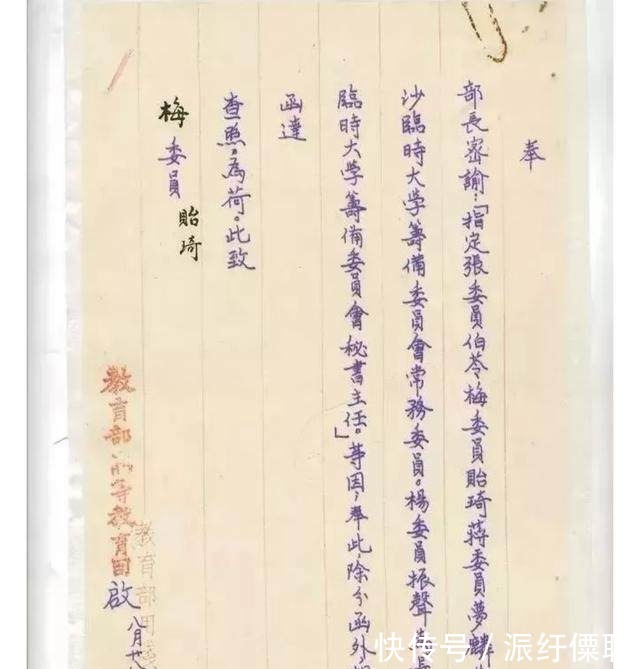 奉
部長密諭：「指定張委員伯苓梅委員貽琦蔣委員夢麟
沙臨時大学籌備委員會常務委員。楊委員振聲
臨時大学籌備委員會秘書主任。」等因，奉此，除分函外
函達
查照，為荷。此致
梅委員貽琦
教育部高等教育司
啟 八月廿八
教育部用箋
快传号／派纡僳耶